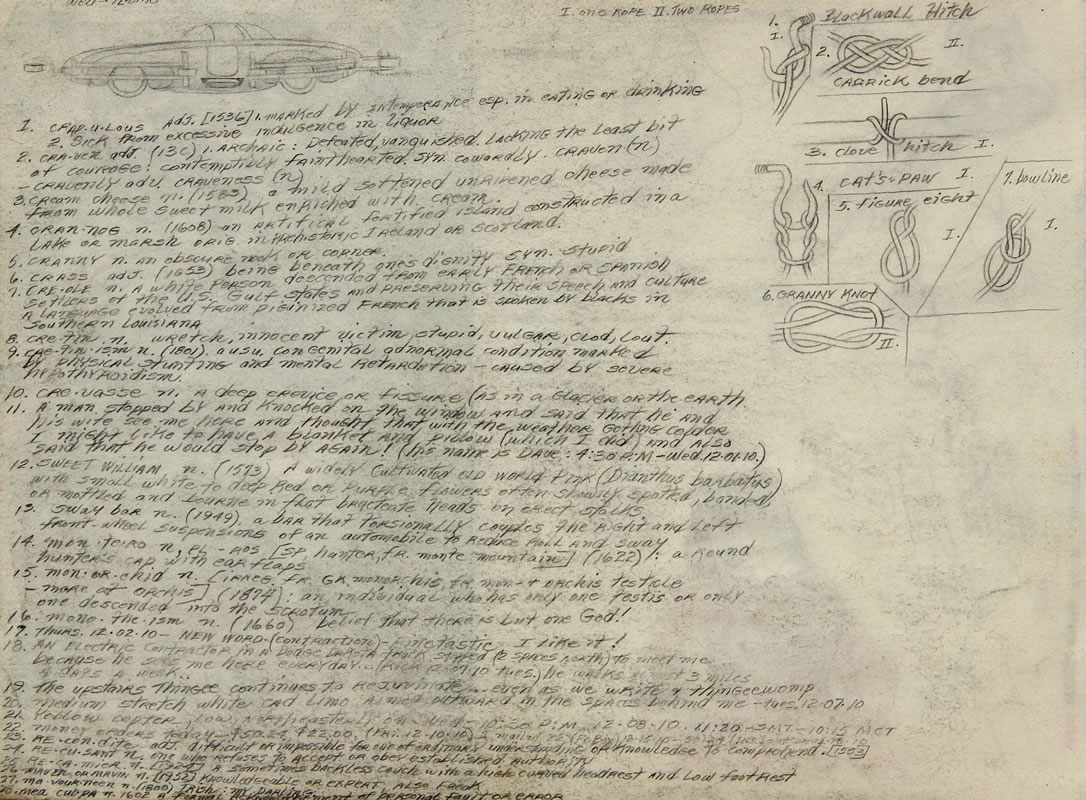 I. ONE ROPE II. TWO ROPES
1. Blackwall Hitch
I.
2.
II.
CARRICK bend
3. clove hitch I.
4. CAT'S-PAW I.
5. figure eight
I.
6. GRANNY KNOT
II.
7. bowline
I.
1. CRAP·U·LOUS Adj. [1536] 1. MARKED by INTEMPERANCE esp. in eating or drinking
2. Sick from excessive indulgence in liquor
2. CRA·VEN adj. (13C) 1. ARCHAIC: Defeated, vanquished. Lacking the least bit
of courage: contemptibly fainthearted. syn. cowardly. CRAVEN (n)
- CRAVENLY adv. CRAVENESS (n)
3. CREAM cheese n. (1583) a mild softened unripened cheese made
from whole sweet milk enriched with cream.
4. CRAN·NOG n. (1608) an ARTIFICAL fortified island constructed in a
Lake or marsh orig. in PREhistoric Ireland or Scotland.
5. CRANNY n. an obscure nook or corner.
6. CRASS adj. (1653) being beneath ones dignity syn. stupid
7. CRE·OLE n. A white person descended from EARLY FRENCH OR SPANISH
settlers of the U.S. Gulf states and preserving their speech and culture
A LANGUAGE evolved from pidginized FRENCH that is spoken by blacks in
Southern Louisiana
8. cre·tin n. wretch, innocent victim, stupid, vulgar, clod, lout.
9. cre·tin·ism n. (1801) a usu. congenital adnormal condition marked
by physical stunting and mental retardation - caused by severe
hypothyroidism.
10. CRE·VASSE n. A deep crevice or fissure (as in a glacier or the earth
11. A man stopped by and knocked on the window and said that he and
his wife see me here and thought that with the weather getting colder
I might like to have a blanket and pillow (which I did) and also
said that he would stop by AGAIN! (his name is DAVE: 4:30 P.M - Wed. 12·01·10.)
12. SWEET WILLIAM n. (1573) A widely cultivated old world Pink (Dianthus barbatus)
with small white to deep red or purple flowers often showily spotted, banded,
or mottled and bourne in flat bracteate heads on erect stalks.
13. Sway bar n. (1949) a bar that torsionally couples the right and left
front wheel suspensions of an automobile to reduce roll and sway
14. mon·te·ro n, pl -ROS [SP, hunter, fr. monte mountain] (1622): a round
hunter's cap with ear flaps
15. mon·or·chid n. [irreg. fr. GK monorchis, fr mon- + orchis testicle
- more at orchis] (1874): an individual who has only one testis or only
one descended into the scrotum
16. mono·the·ism n. (1660) belief that there is but one God!
17. Thurs. 12·02·10 - NEW WORD (contraction) - Finetastic I like it!
18. AN Electric contractor in a Dodge Dakota truck stopped (2 spaces north) to meet me
because he sees me here everyday... 12·07·10 Tues.) he walks 3 miles
days a week.
19. the upstairs thingee continues to rejuvinate... even as we write
20. medium stretch white Cad Limo aimed outward in the spaces behind me - Tues. 12·07·10
21. Yellow copter, low, northeasterly on Wed. 12·08·10. 11:20
22. money orders today - $50.24, $22.00, (Fri. 12·10·10)
23. RE·CON·DITE adj. difficult or impossible for one of ordinary understanding or knowledge to comprehend.
24. RE·CU·SANT n. one who refuses to accept or obey established authority
25. RE·CA·MIER n. A sometimes backless couch with a high curved headrest and low footrest
26. MAVEN or MAVIN n. [1952] Knowledgeable or expert also Freak
27. ma·vour·neen n. (1800) Irish: my darling
28. mea culpa n. 1602 a formal acknowledgement of personal fault or error